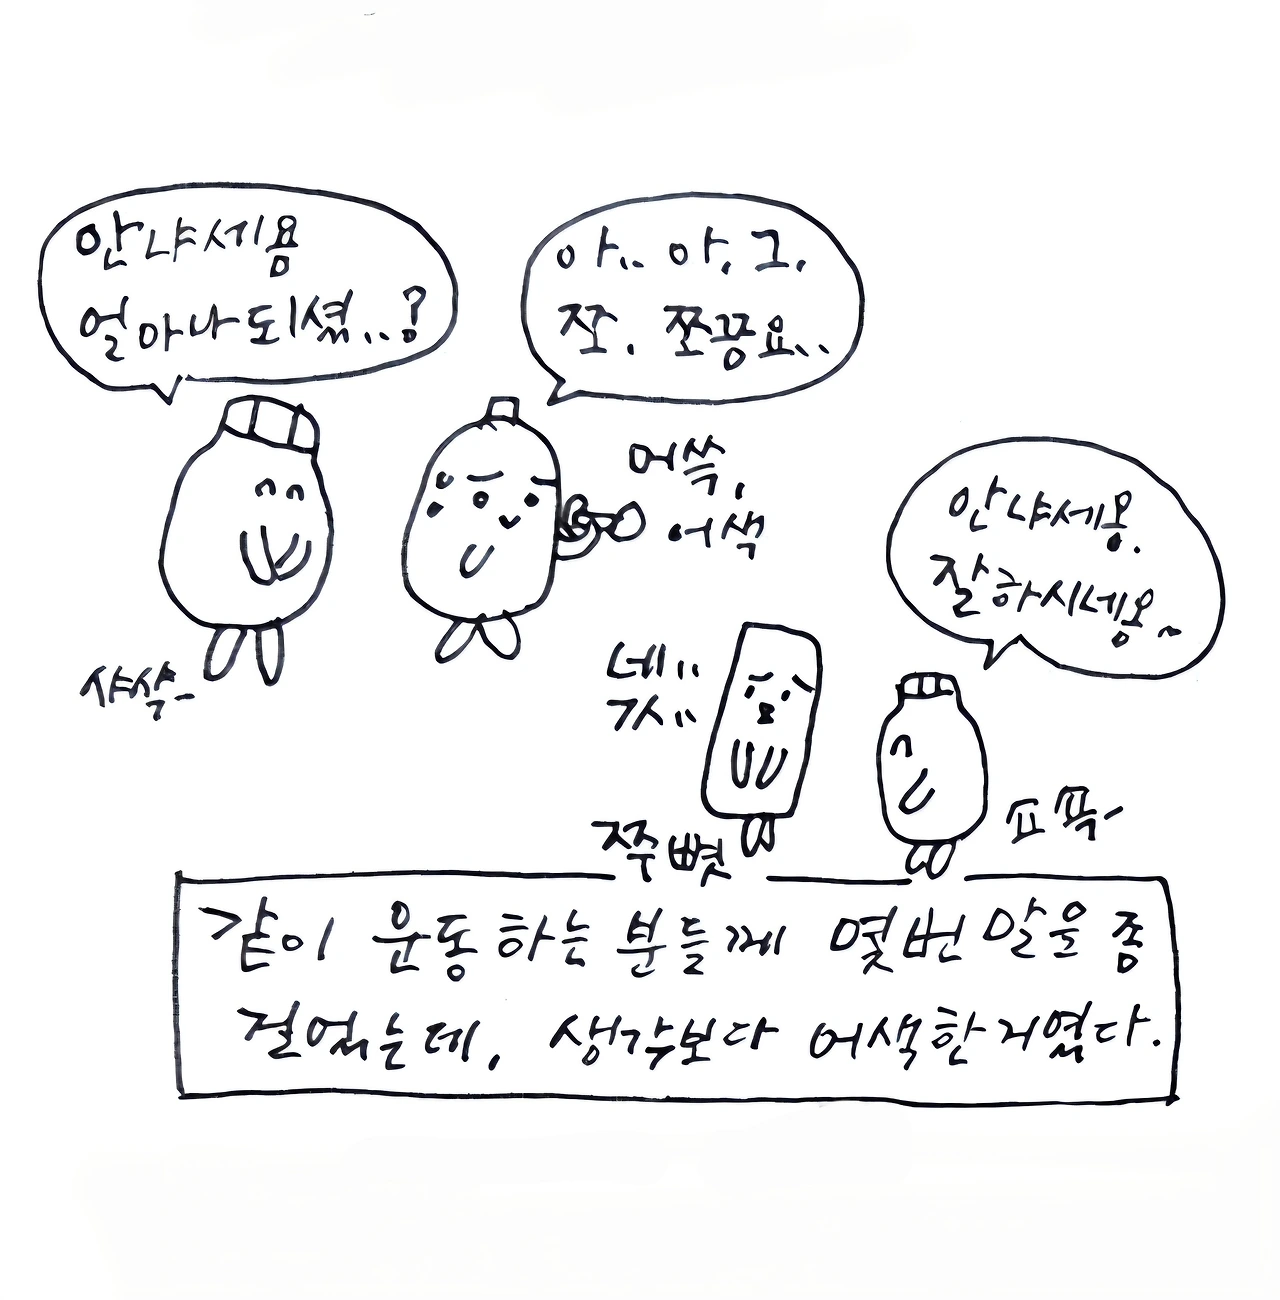 안냐세용
얼아나되셨..?
아.. 아, 그,
쪼. 쪼끔요..
어쓱,
어색
샤샥-
안냐세용.
잘하시네용~
네..
가사..
쭈뼛
ㅍ픅-
같이 운동하는 분들께 몇번 말을 좀
걸었는데, 생각보다 어색한거였다.